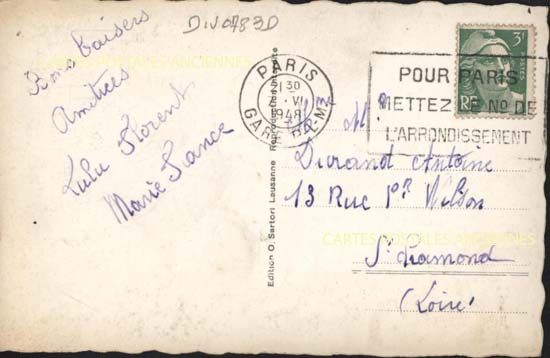 DIV0783D
Bons baisers
Amitiées
Lulu Florent
Marie France
CARTES POSTALES ANCIENNES
Edition O. Sartori Lausanne
PARIS
21 30
1948
GARE
3F
RF
POUR PARIS
METTEZ LE No DE
L'ARRONDISSEMENT
Durand Antoine
13 Rue Pt Wilson
CARTES POSTALES ANCIENNES
St Chamond
(Loire)